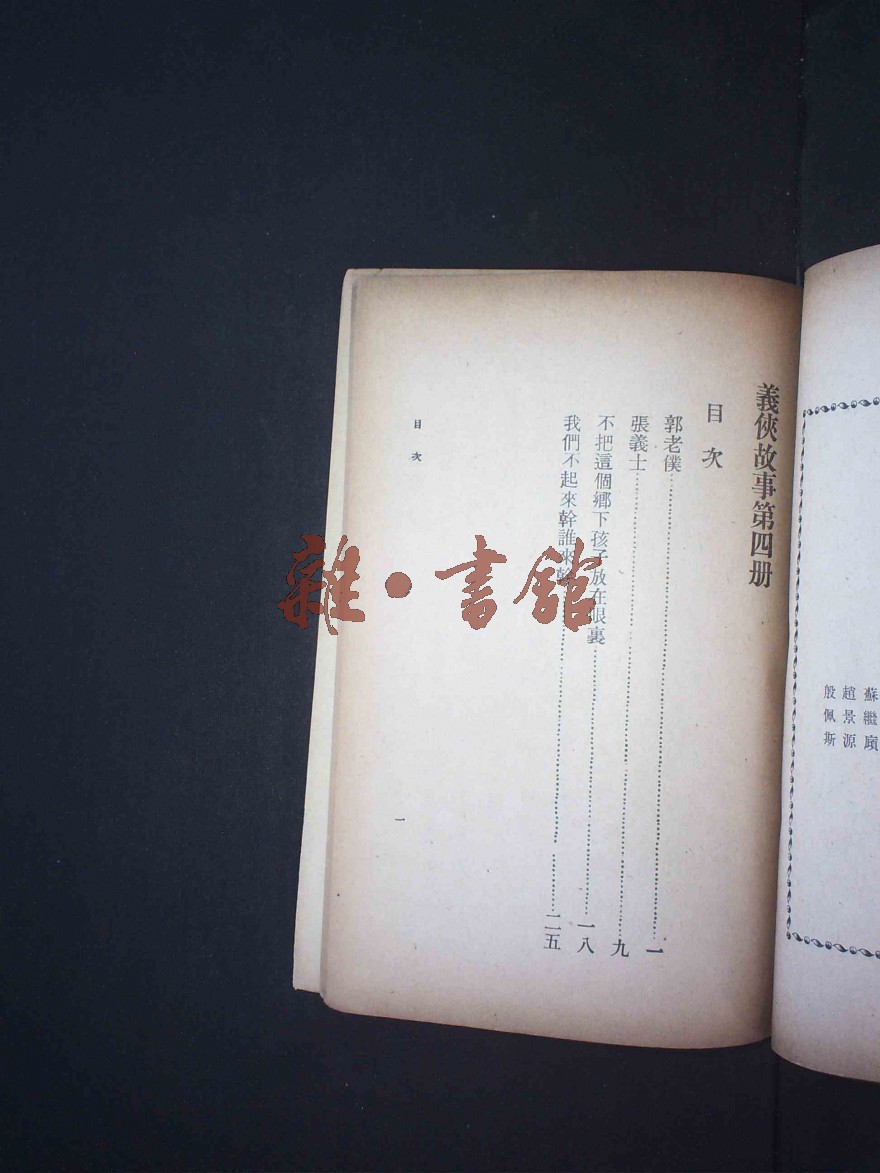 蘇繼廎
趙景源
殷佩斯
義俠故事第四册
目次
郭老僕……一
張義士……九
不把這個鄉下孩子放在眼裏……一八
我們不起來幹誰來幹……二五
目次
一
雜·書館